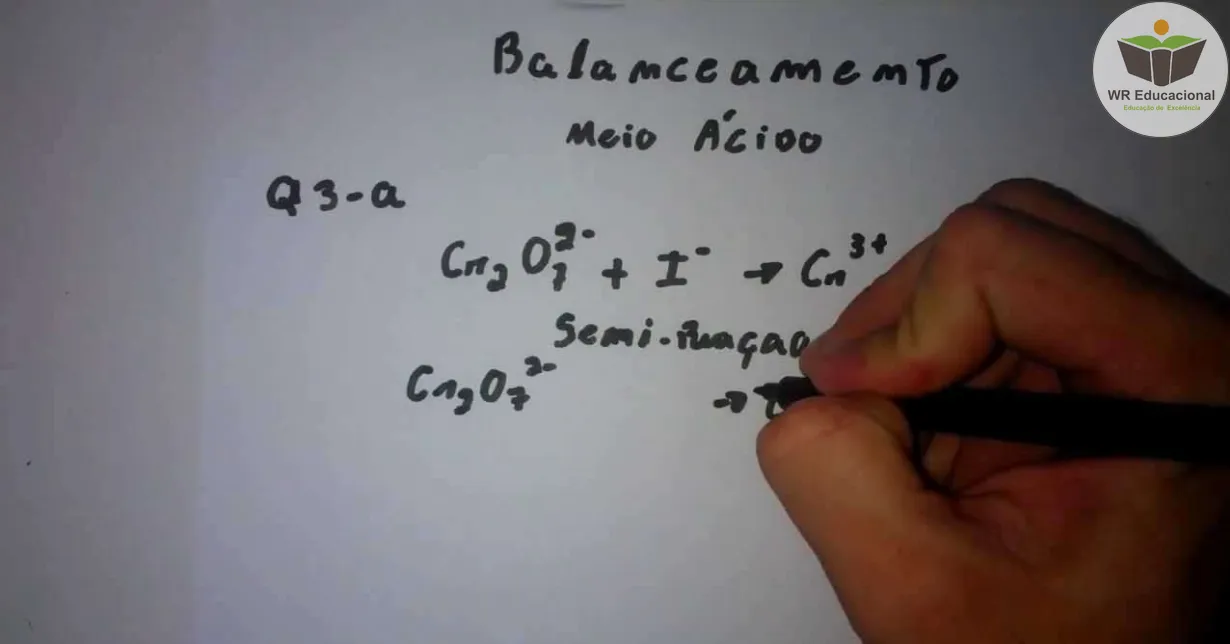 Balanceamento
Meio Ácido
Q3-a
Cr₂O₇²⁻ + I⁻ → Cr³⁺
Semi-reação
Cr₂O₇²⁻ →
WR Educacional
Educação de Excelência